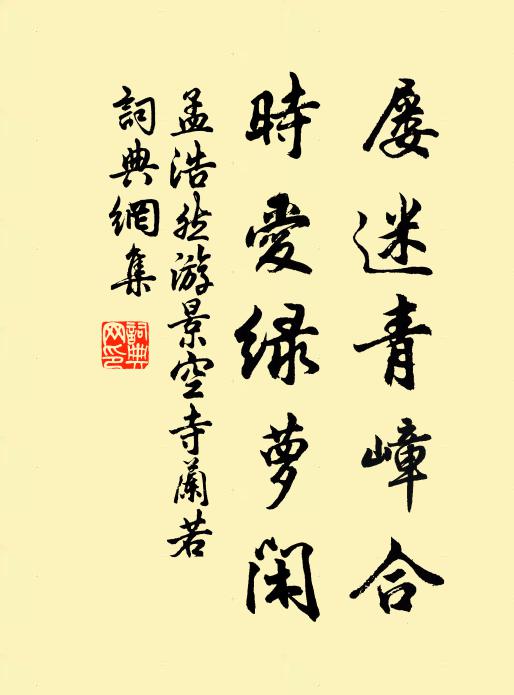 屡迷青嶂合
時愛緑萝閑
孟浩然游景空寺蘭若
詞典網集
詞典网印